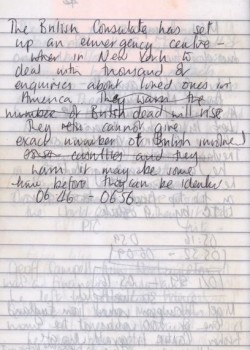 The British Consulate has set
up an emergency centre -
when in New York to
deal with thousand of
enquiries about loved ones in
America. They warn the
number of British dead will rise
They cannot give
exact number of British involved
casualties and they
warn it may be some
time before they can be identied
06 46 - 06 56.